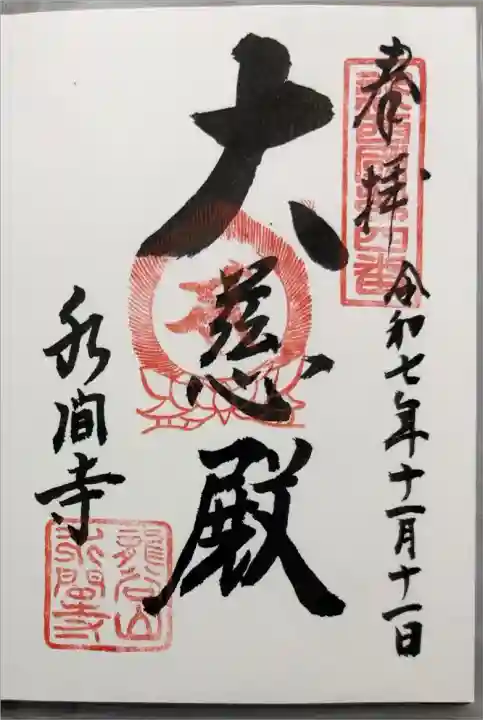 奉拝
令和七年十一月十一日
大慈殿
水間寺
龍谷山
水間寺